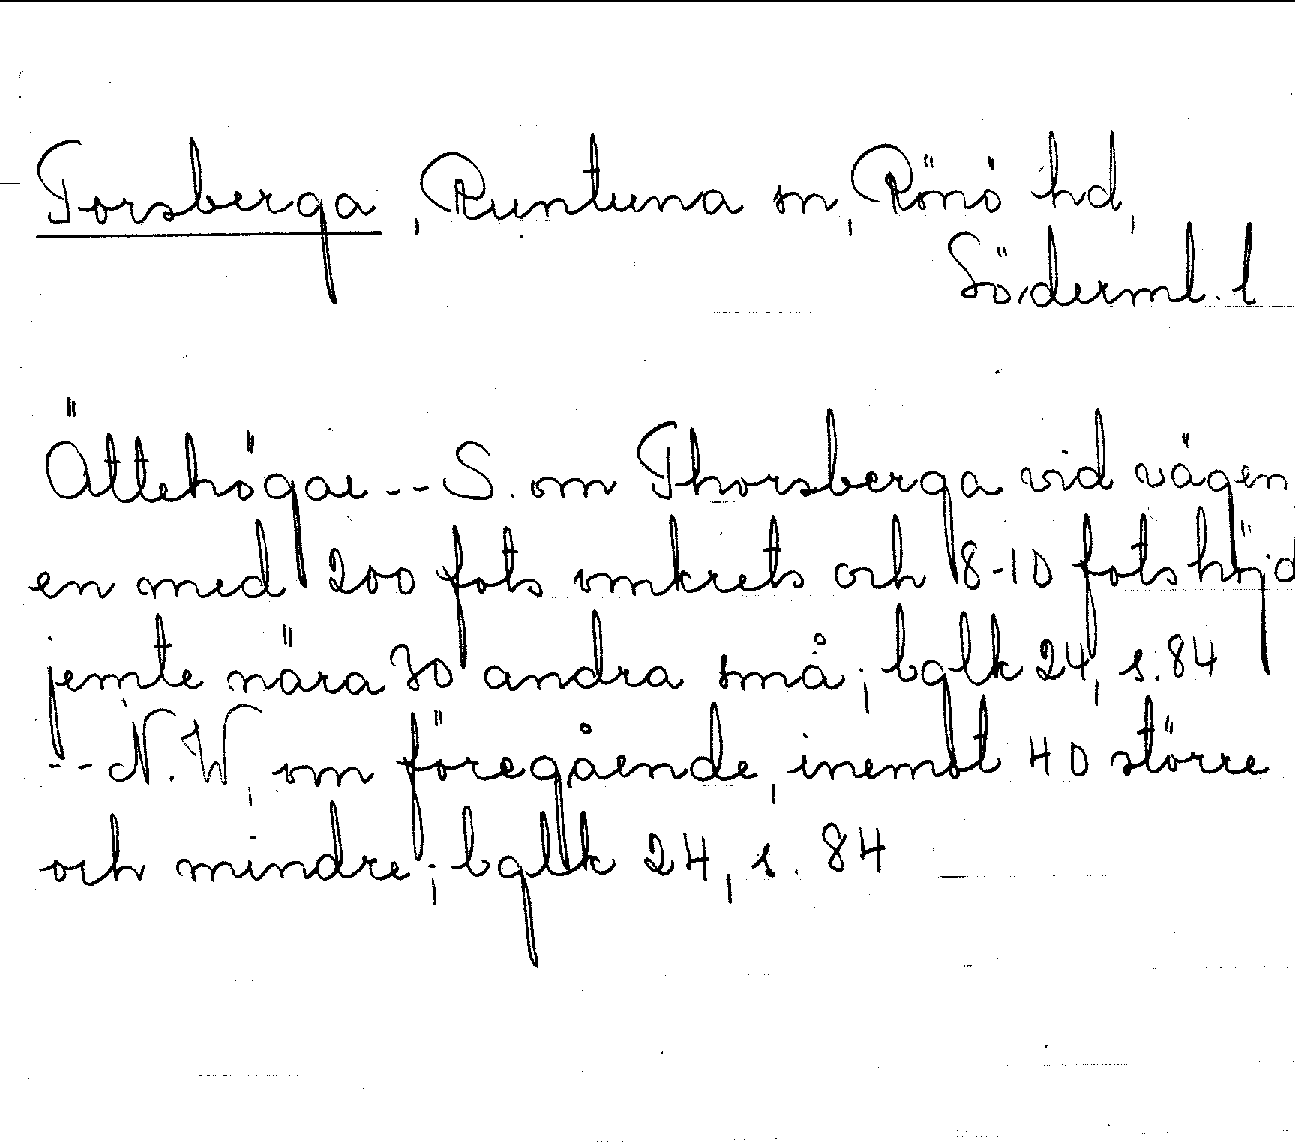 Torsberga, Runtuna sn, Rönö hd,
Söderml. l
Ättehögar -- S. om Thorsberga vid vägen
en med 200 fots omkrets och 8-10 fots höjd
jemte nära 70 andra små; bglk 24, s. 84
-- N.W. om föregående, inemot 40 större
och mindre; bglk 24, s. 84